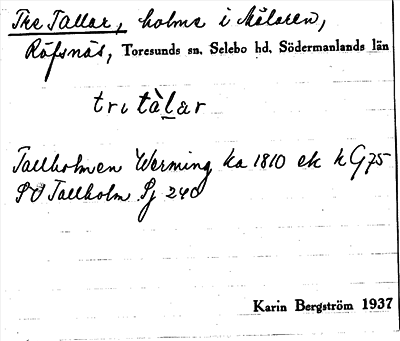 Tre Tallar, holme i Mälaren,
Räfsnäs, Toresunds sn, Selebo hd, Södermanlands län
tri tàlar
Tallholmen Werming ka 1810 ek k G75
SO Tallholm Sj 240
Karin Bergström 1937